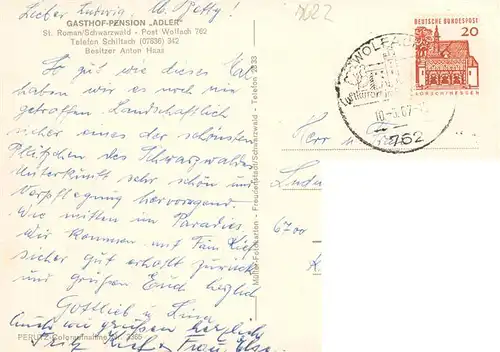 Lieber Ludwig, lb. Betty!
GASTHOF-PENSION „ADLER"
St. Roman/Schwarzwald - Post Wolfach 762
Telefon Schiltach (07836) 342
Besitzer Anton Haas
So gut wie dieses Mal
haben wir es noch nie
getroffen. Landschaftlich
sicher eines der schönsten
Plätzchen des Schwarzwaldes
Unterkunft sehr schön und
Verpflegung hervorragend.
Wie mitten im Paradies.
Wir kommen mit
sicher gut erholt zurück
und grüßen Euch herzlich
Gottlieb u. Lina
Auch wir grüßen herzlich
Fritz Frau Else
PERUTZ-Coloraufnahme Nr. 2365
Müller-Fotokarten - Freudenstadt/Schwarzwald - Telefon 2833
DEUTSCHE BUNDESPOST
20
LORSCH/HESSEN
WOLFACH
10.-5.67
762
Herr u.
6700